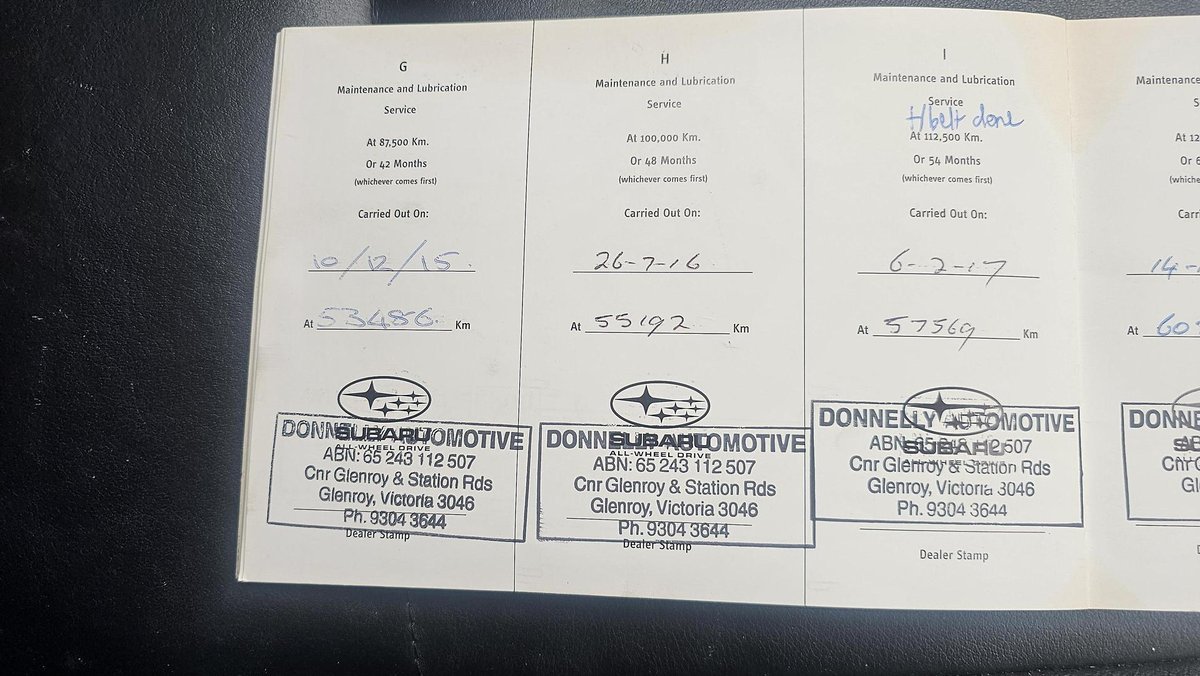 G
Maintenance and Lubrication
Service
At 87,500 Km.
Or 42 Months
(whichever comes first)
Carried Out On:
10/12/15
At 53486 Km
SUBARU
ALL-WHEEL DRIVE
DONNELLY AUTOMOTIVE
ABN: 65 243 112 507
Cnr Glenroy & Station Rds
Glenroy, Victoria 3046
Ph. 9304 3644
Dealer Stamp
H
Maintenance and Lubrication
Service
At 100,000 Km.
Or 48 Months
(whichever comes first)
Carried Out On:
26-7-16
At 55192 Km
SUBARU
ALL-WHEEL DRIVE
DONNELLY AUTOMOTIVE
ABN: 65 243 112 507
Cnr Glenroy & Station Rds
Glenroy, Victoria 3046
Ph. 9304 3644
Dealer Stamp
I
Maintenance and Lubrication
Service
t/belt done
At 112,500 Km.
Or 54 Months
(whichever comes first)
Carried Out On:
6-2-17
At 57569 Km
DONNELLY AUTOMOTIVE
SUBARU
ABN: 65 243 112 507
Cnr Glenroy & Station Rds
Glenroy, Victoria 3046
Ph. 9304 3644
Dealer Stamp
Maintenance
At 12
Or 6
(whiche
Carr
14-
At 60
DONN
Cnr G
Gl